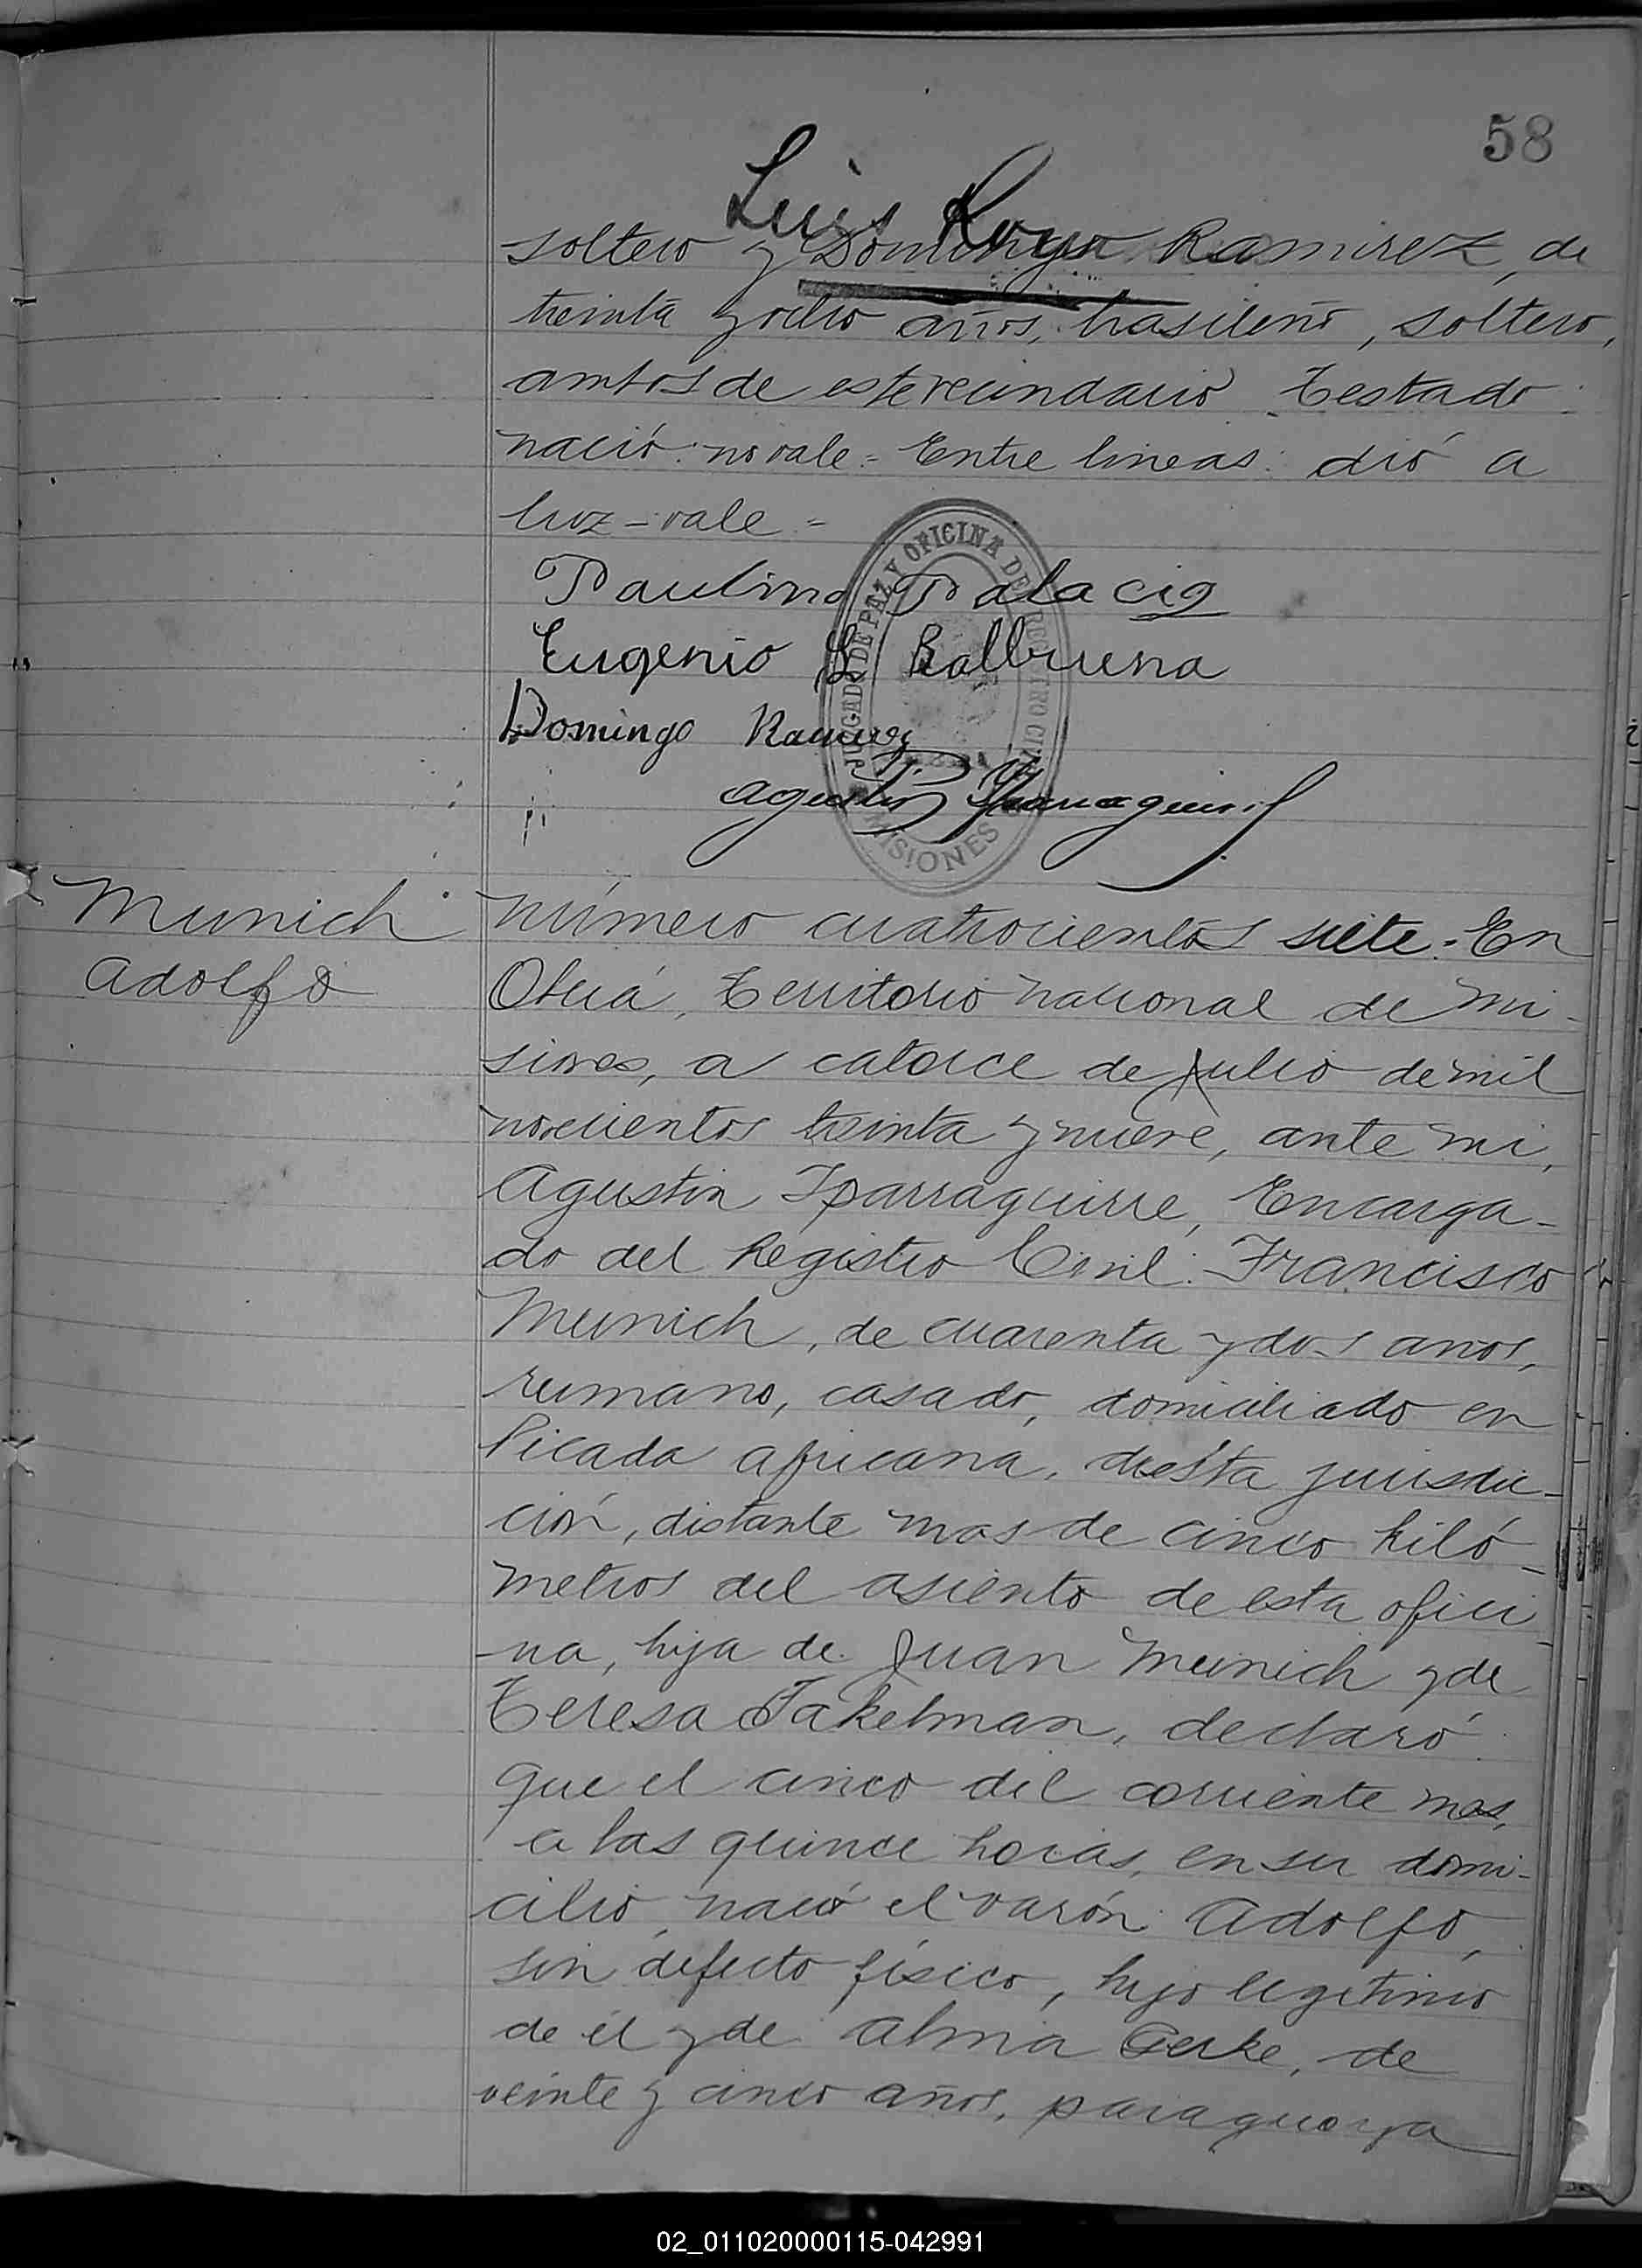 58
Luis Roya
soltero y Domingo Ramirez, de
treinta y ocho años, brasileño, soltero,
ambos de este vecindario Testado:
nació: no vale = Entre lineas: dió a
luz - vale =
JUZGADO DE PAZ Y OFICINA DE REGISTRO CIVIL
MISIONES
Paulino Palacio
Eugenio L Balbuena
Domingo Ramirez
Agustin P. Yparraguirre
Munich
Adolfo
Número cuatrocientos siete = En
Oberá, Territorio nacional de Mi-
siones, a catorce de Julio de mil
novecientos treinta y nueve, ante mi,
Agustin Iparraguirre, Encarga-
do del Registro Civil: Francisco
Munich, de cuarenta y dos años,
rumano, casado, domiciliado en
Picada africana, de esta jurisdic-
ción, distante mas de cinco kiló-
metros del asiento de esta ofici-
na, hija de Juan Munich y de
Teresa Takelman, declaró:
Que el cinco del corriente mes,
a las quince horas, en su domi-
cilio, nació el varón Adolfo,
sin defecto físico, hijo legitimo
de él y de Alma Gerke, de
veinte y cinco años, paraguaya
02_011020000115-042991